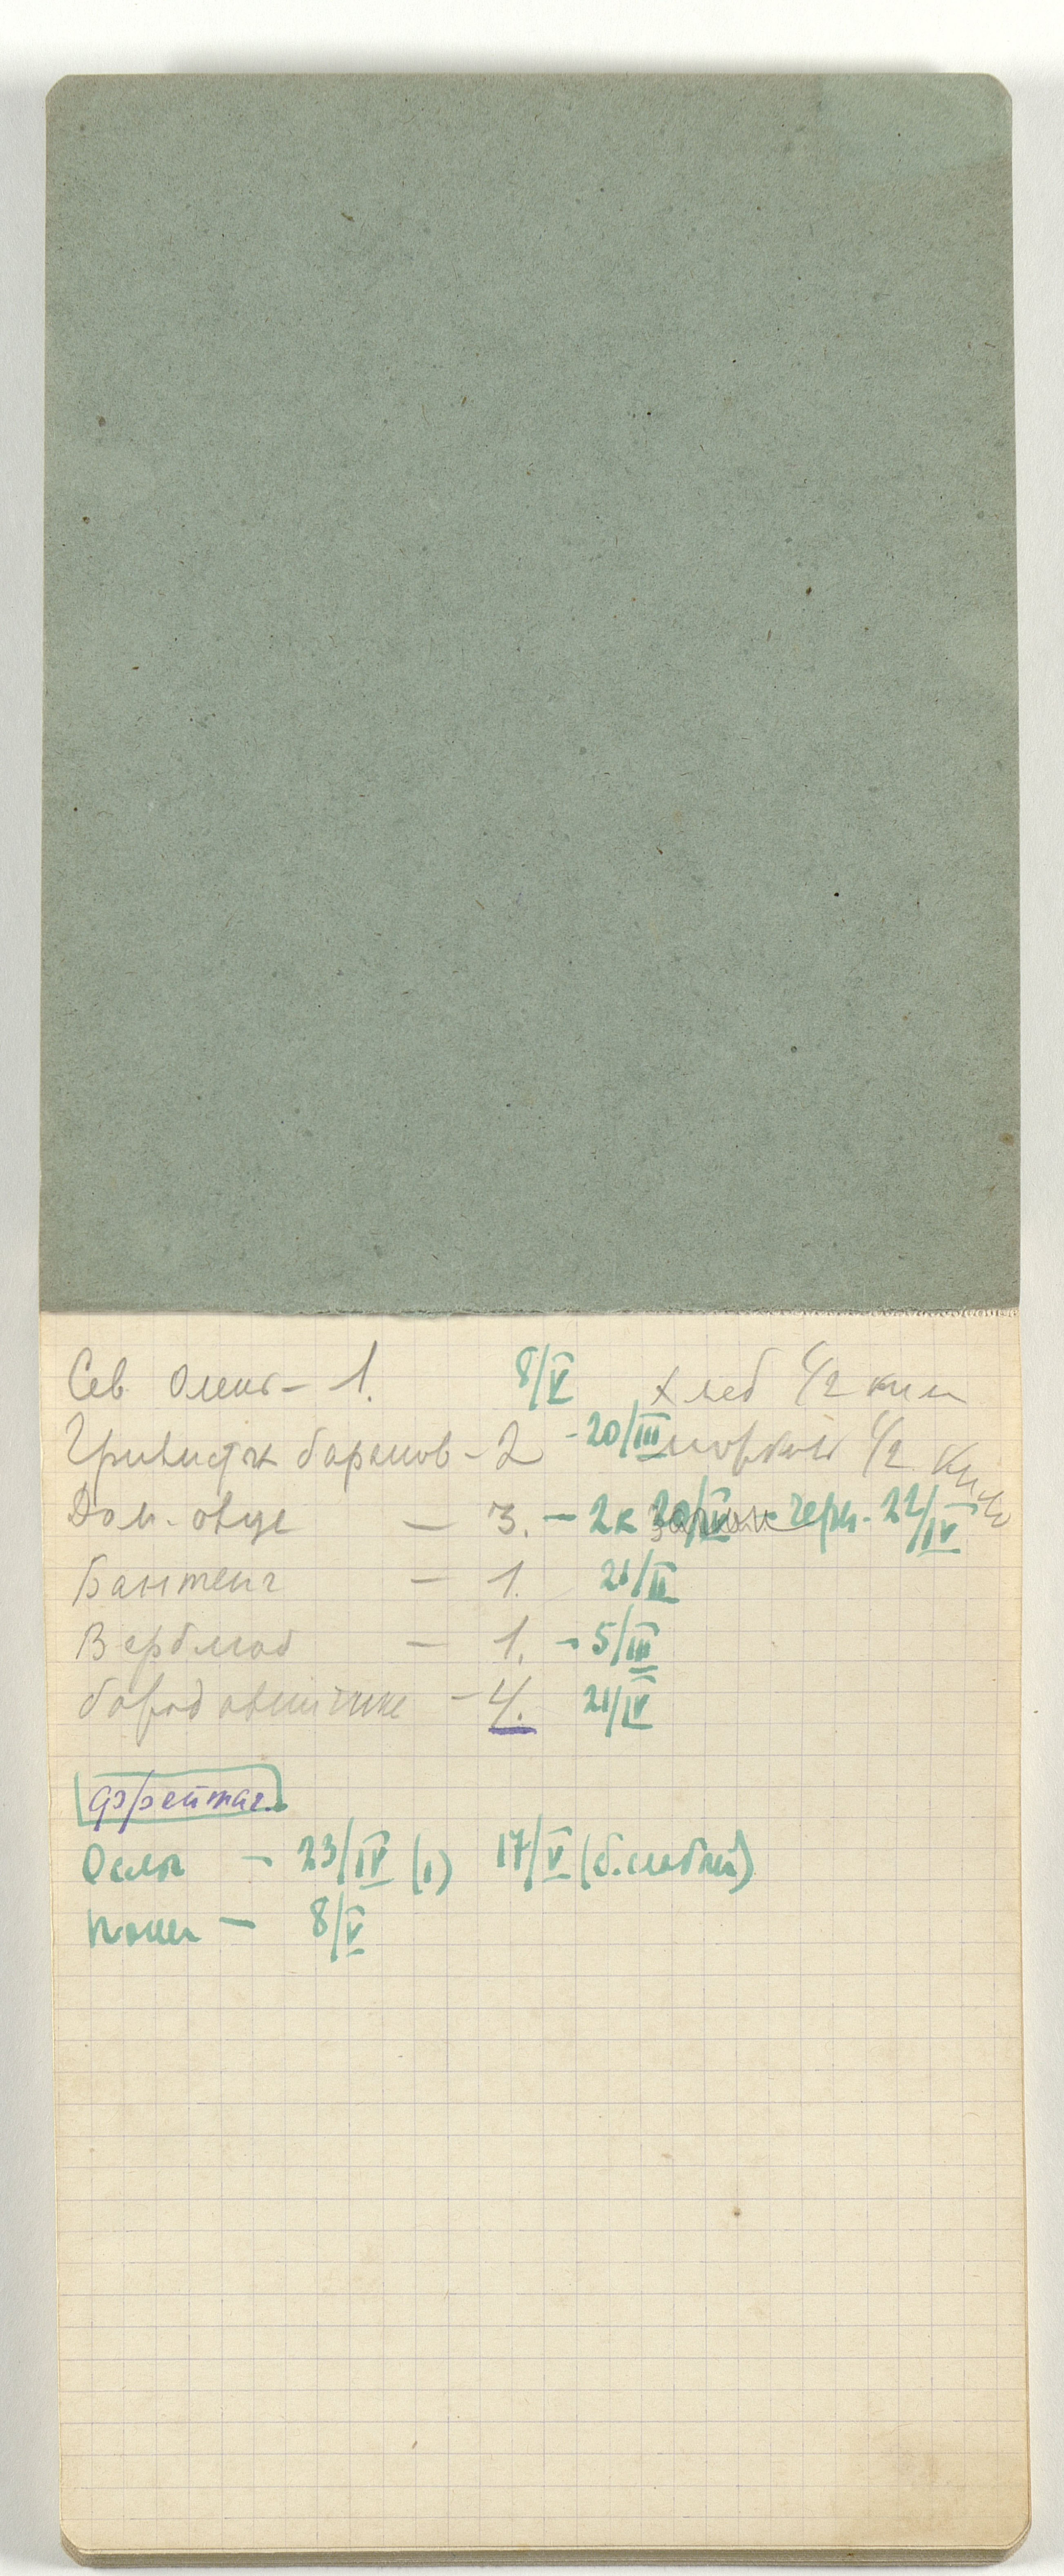 Сев олень – 1. 8/V хлеб 1/2 кил
Гривистых баранов – 2 – 20/III морковь 1/2 кило
Дом. овце – 3. – 2 к 20/IV черн. 22/IV
Бантенг – 1. 21/II
Верблюд – 1. – 5/III
бородавчатые – 4. 21/IV
Фрейтаг.
Ослы – 23/IV (1) 17/V (б. слабый)
Пони – 8/V